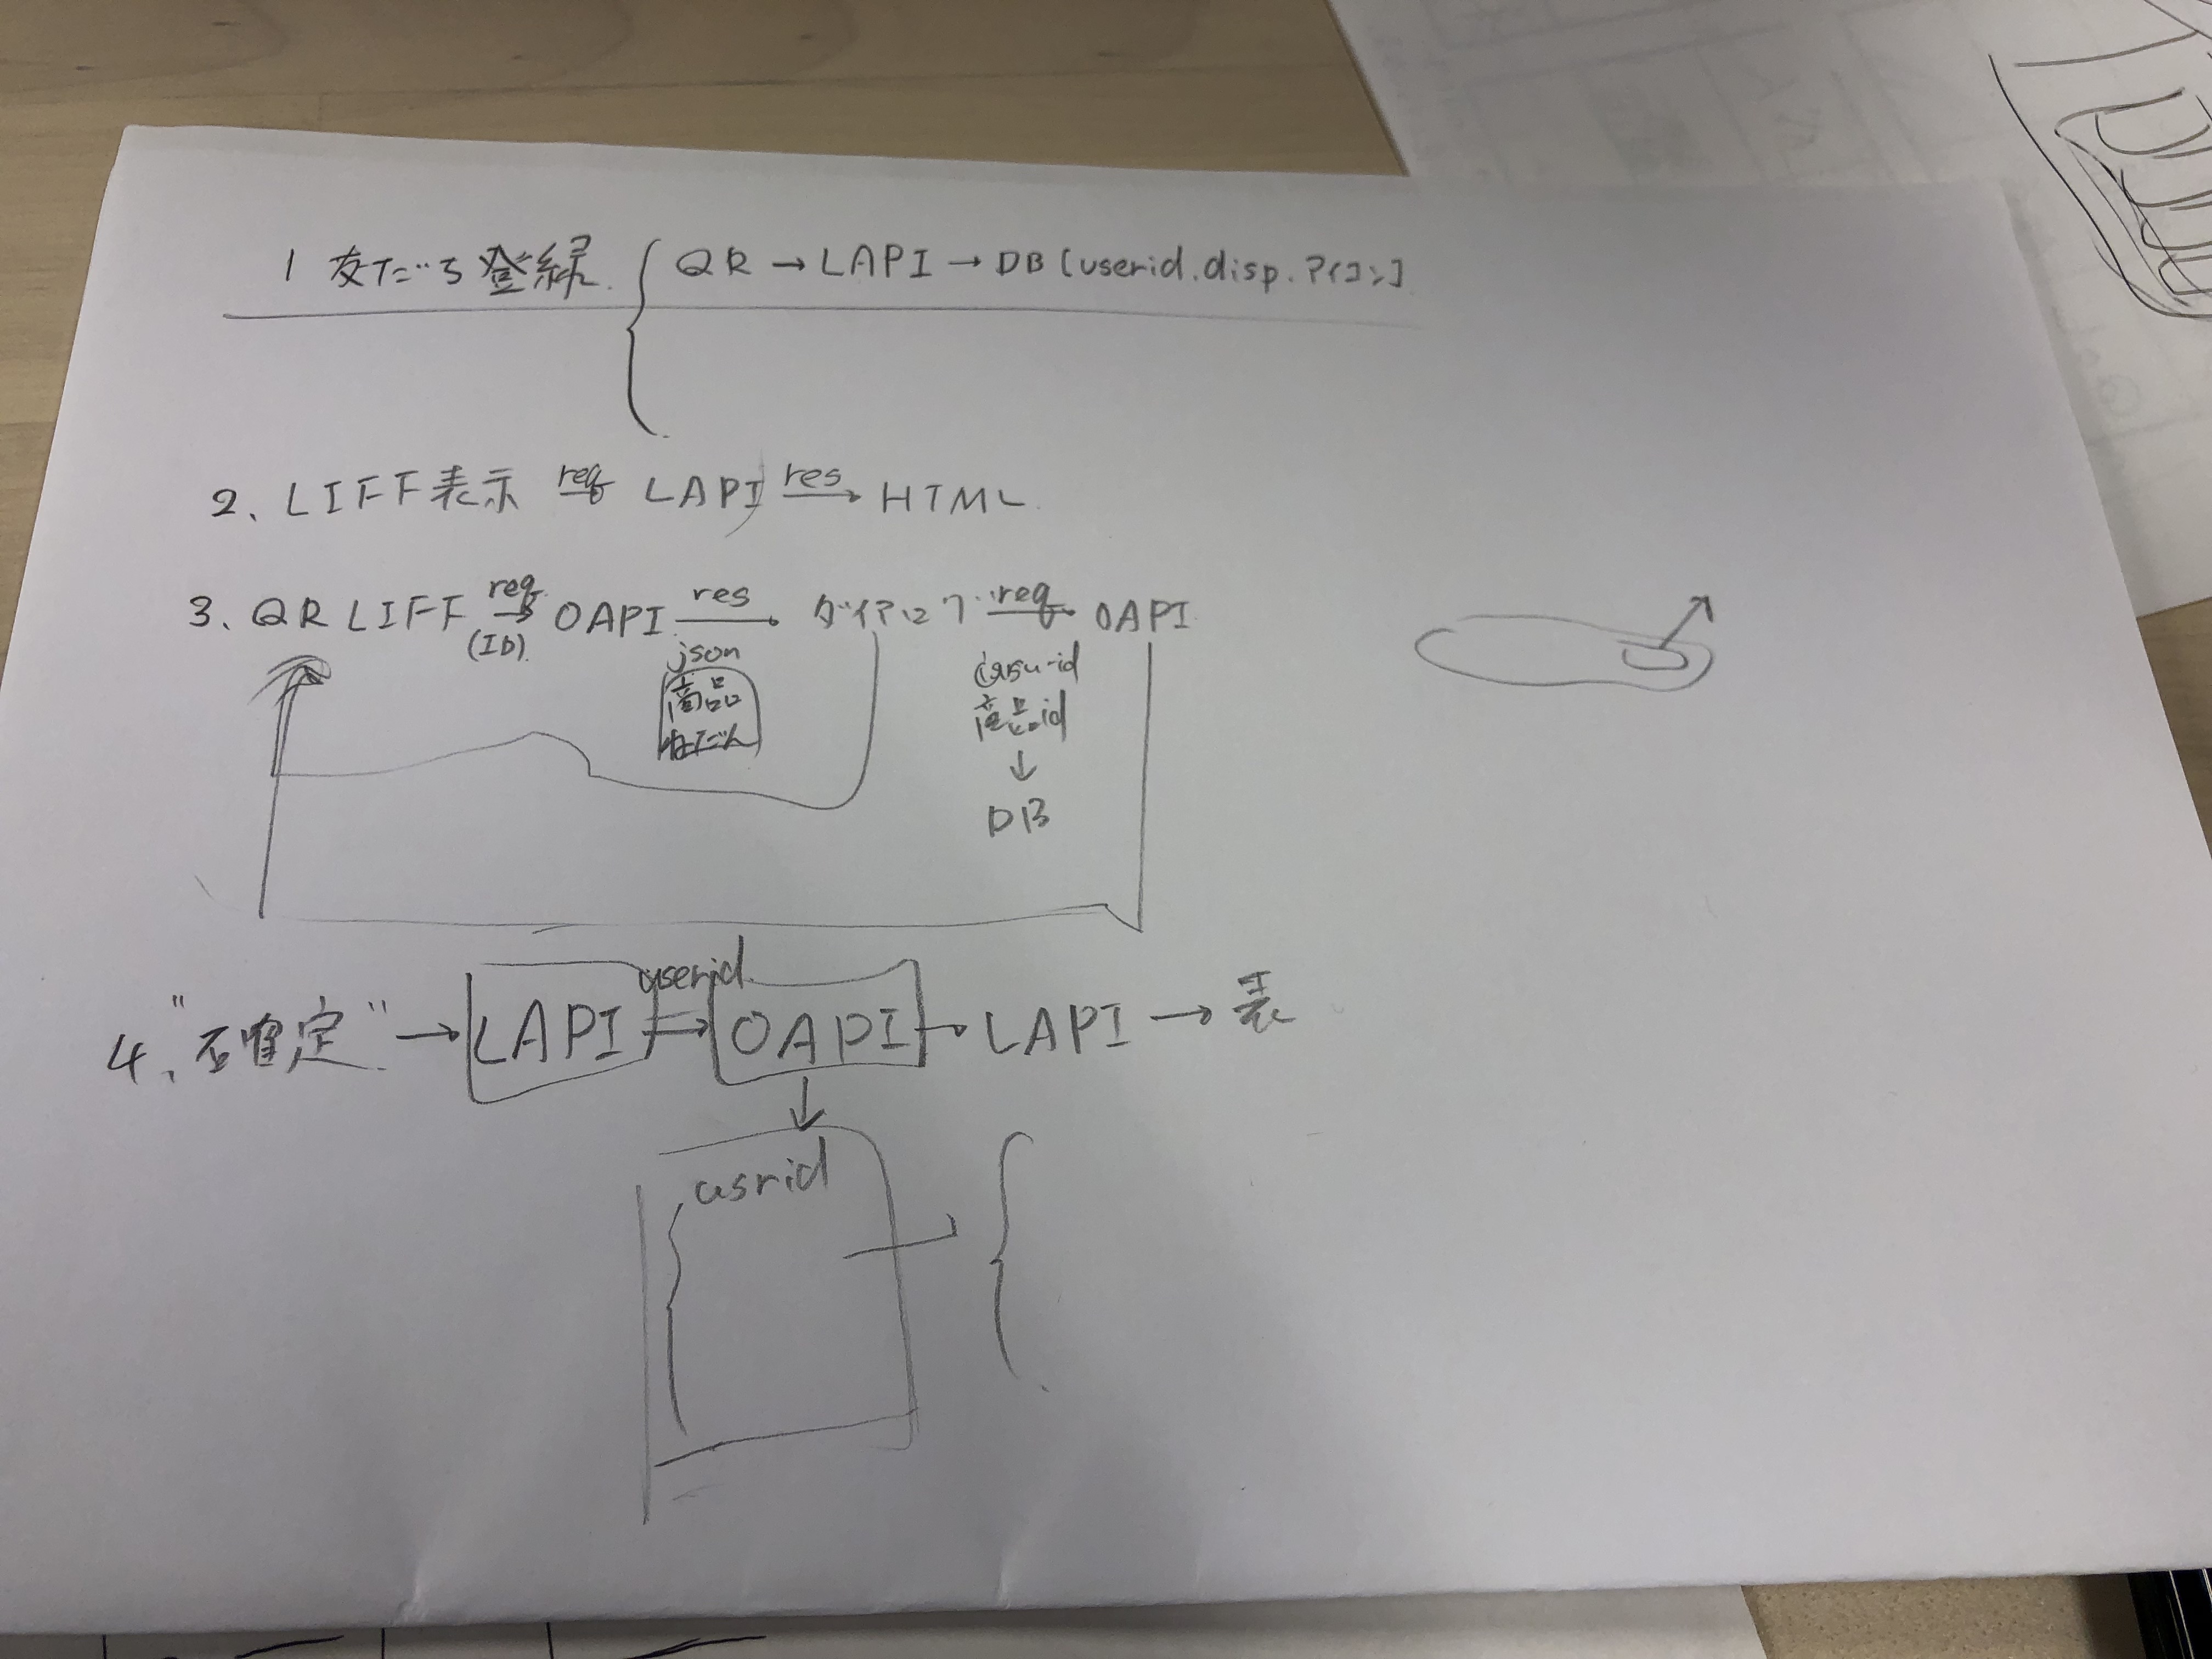 1 友だち登録 QR → LAPI → DB [userid.disp.アイコン]
2、LIFF表示 req LAPI res → HTML
3、QR LIFF req → (ID) OAPI res → json ダイアログ req → OAPI
商品
ねだん
商品id
↓
DB
4、"確定" → LAPI → userid OAPI → LAPI → 表
↓
usrid